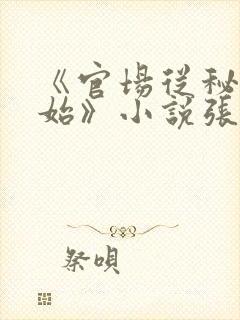 《官場從秘
始》小說張
祭唄